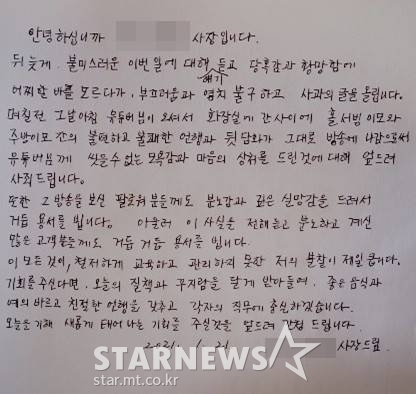 안녕하십니까 사장입니다.
뒤늦게, 불미스러운 이번일에 대해 듣고 당혹감과 황망함에
얘기
어찌할 바를 모르다가, 부끄러움과 염치 불구하고 사과의 글을 올립니다.
며칠전 그날아침 유튜버님이 오셔서 화장실에 간 사이에 홀서빙 이모와
주방이모 간의 불편하고 불쾌한 언행과 뒷담화가 그대로 방송에 나감으로써
유튜버님께 씻을수 없는 모욕감과 마음의 상처를 드린것에 대해 엎드려
사죄드립니다.
또한 그 방송을 보신 팔로워 분들께도 분노감과 깊은 실망감을 드려서
거듭 용서를 빕니다. 아울러 이 사실을 전해듣고 분노하고 계신
많은 고객분들께도 거듭 거듭 용서를 빕니다.
이 모든것이, 철저하게 교육하고 관리하지 못한 저의 불찰이 제일 큽니다.
기회를 주신다면, 오늘의 질책과 꾸지람을 달게 받아들여, 좋은음식과
예의 바르고 친절한 언행을 갖추고 각자의 직무에 충실하겠습니다.
오늘을 기해 새롭게 태어나는 기회를 주실것을 엎드려 간청드립니다.
2021. 1. 21 사장드림
STARNEWS
star.mt.co.kr